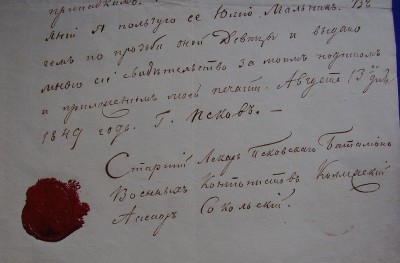 припадкамъ.
я пользую ее Юлiю
чемъ по прозьбѣ оной Девицы и выдано
мною сiе свидѣтельство за моимъ подписомъ
и приложенiемъ моей печати. Августа 13 дня
1849 года. Г. Псковъ. —
Старшiй Лекарь Псковскаго Баталiона
Военныхъ Кантонистовъ Коллежскiй
Асесоръ Сокольскiй.